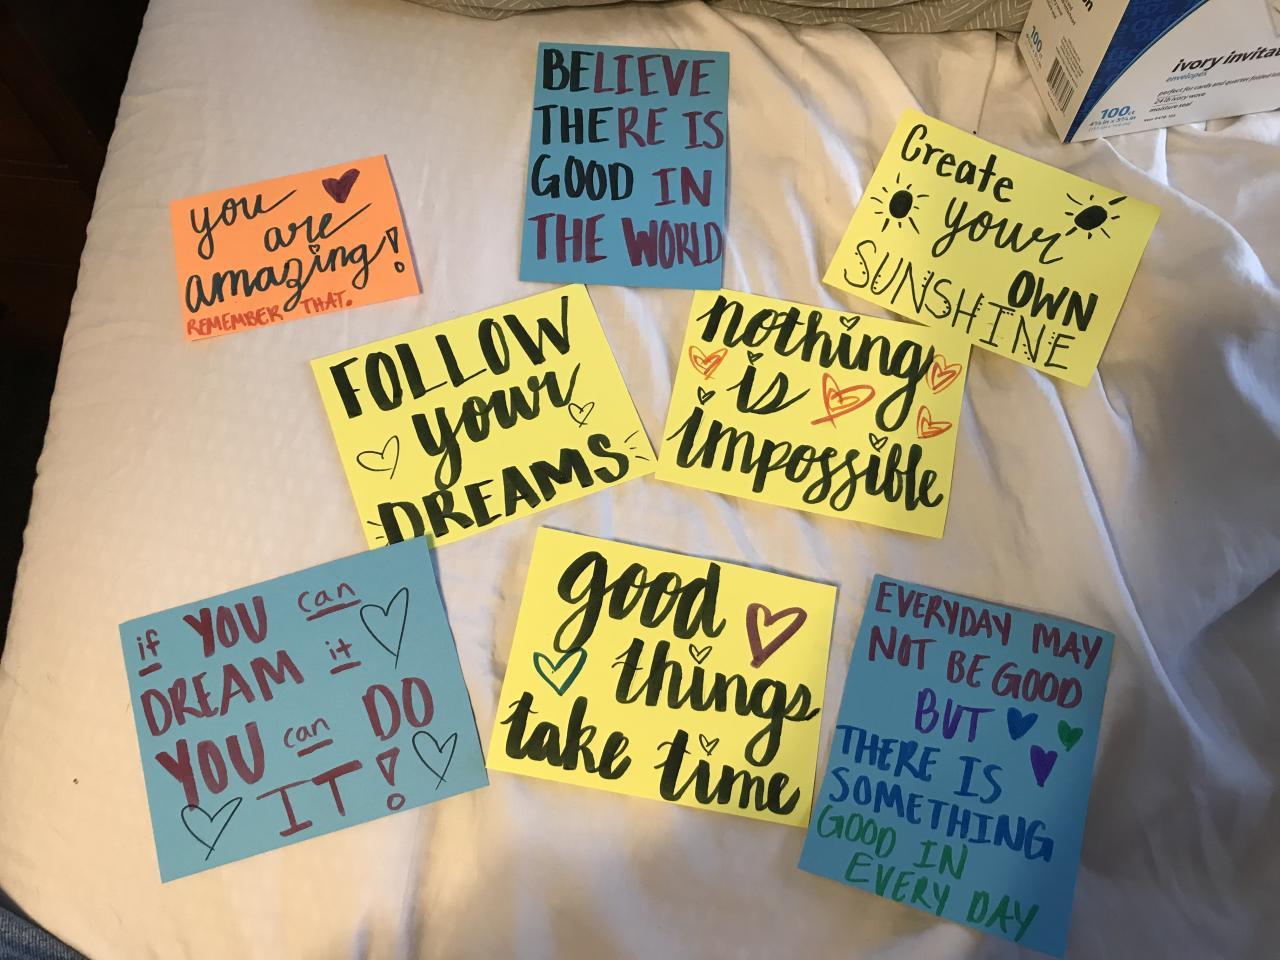 BELIEVE
THERE IS
GOOD IN
THE WORLD
you
are
amazing!
REMEMBER THAT.
Create
your
OWN
SUNSHINE
FOLLOW
your
DREAMS
nothing
is
impossible
if YOU can
DREAM it
YOU can DO
IT!
good
things
take time
EVERYDAY MAY
NOT BE GOOD
BUT
THERE IS
SOMETHING
GOOD IN
EVERY DAY
100
ivory invitat
envelopes
perfect for cards and quarter folded
24 lb ivory wove
moisture seal
100